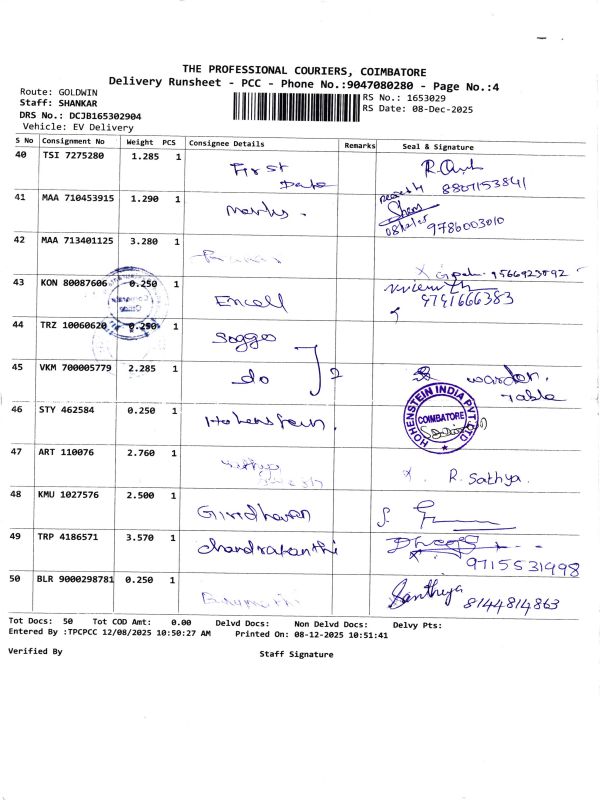 THE PROFESSIONAL COURIERS, COIMBATORE
Delivery Runsheet - PCC - Phone No.:9047080280 - Page No.:4
Route: GOLDWIN
Staff: SHANKAR
DRS No.: DCJB165302904
Vehicle: EV Delivery
RS No.: 1653029
RS Date: 08-Dec-2025
S No Consignment No Weight PCS Consignee Details Remarks Seal & Signature
40 TSI 7275280 1.285 1 First Date 8807153841
41 MAA 710453915 1.290 1 08/12/25 9786003010
42 MAA 713401125 3.280 1 9566923092
43 KON 80087606 0.250 1 Encell
44 TRZ 10060620 0.250 1 Soggo
45 VKM 700005779 2.285 1 do Warden. Table
46 STY 462584 0.250 1 Hohenstein. HOHENSTEIN INDIA PVT LTD COIMBATORE
47 ART 110076 2.760 1 R. Sathya.
48 KMU 1027576 2.500 1 Giridharan
49 TRP 4186571 3.570 1 Chandrakanthi 9715531998
50 BLR 9000298781 0.250 1 Santhiya 8144814863
Tot Docs: 50 Tot COD Amt: 0.00 Delvd Docs: Non Delvd Docs: Delvy Pts:
Entered By :TPCPCC 12/08/2025 10:50:27 AM Printed On: 08-12-2025 10:51:41
Verified By Staff Signature